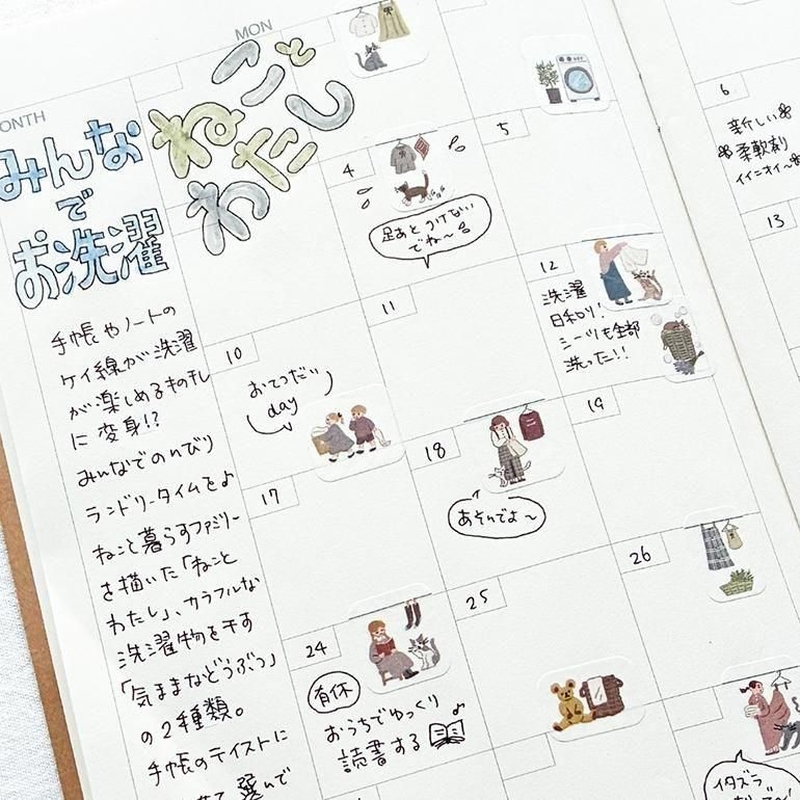 MON
ONTH
ねこと
わたし
みんな
で
お洗濯
手帳やノートの
ケイ線が洗濯
が楽しめるキのモレ
に変身!?
みんなでのんびり
ランドリータイムをよ
ねこと暮らすファミリー
を描いた「ねこと
わたし」、カラフルな
洗濯物を干す
「気ままなどうぶつ」
の2種類。
手帳のテイストに
せて選んで
4
足あとつけない
でね〜
5
6
新しい
柔軟剤
イイニオイ〜
10
おてつだい
day
11
12
洗濯
日和り!
シーツも全部
洗った!!
13
17
18
あそんでよ〜
19
24
有休
おうちでゆっくり♪
読書する
25
26
イタズラ